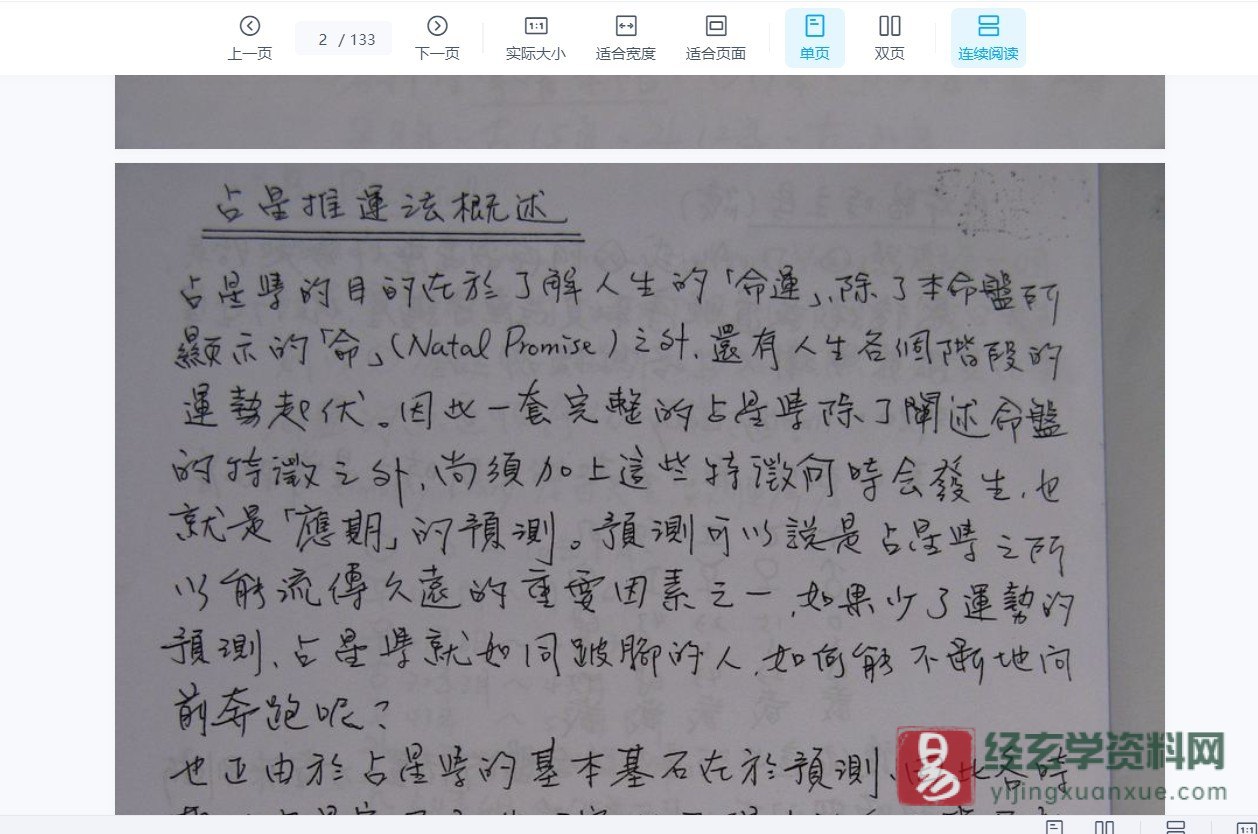 上一页
2 / 133
下一页
1:1
实际大小
适合宽度
适合页面
单页
双页
连续阅读
占星推運法概述
占星學的目的在於了解人生的「命運」,除了本命盤所
顯示的「命」(Natal Promise)之外,還有人生各個階段的
運勢起伏。因此一套完整的占星學除了闡述命盤
的特徵之外,尚須加上這些特徵何時会發生,也
就是「應期」的預測。預測可以說是占星學之所
以能流傳久遠的重要因素之一,如果少了運勢的
預測,占星學就如同跛腳的人,如何能不斷地向
前奔跑呢?
也正由於占星學的基本基石在於預測,因此各時
易
经玄学资料网
yijingxuanxue.com